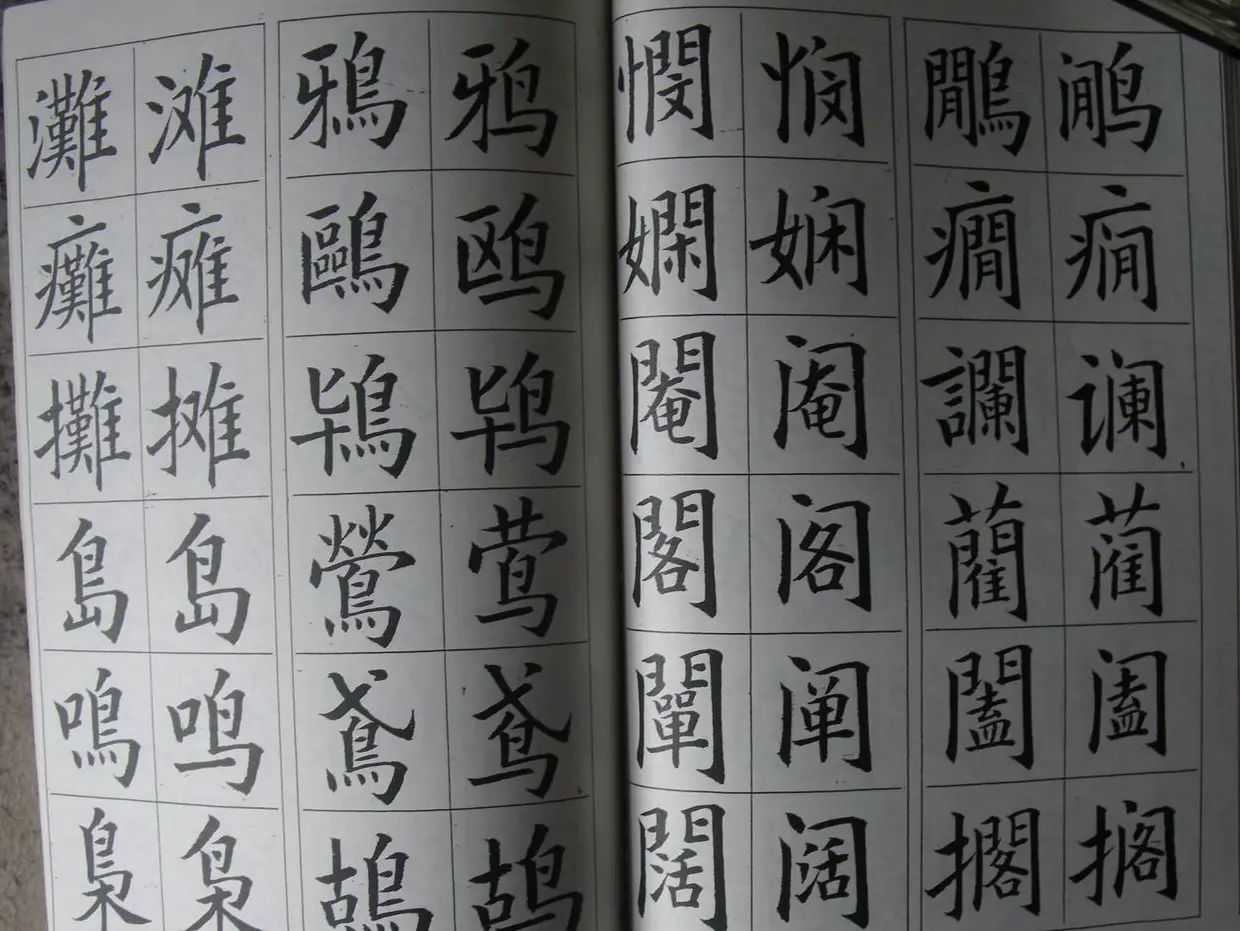 灘 滩 鴉 鸦
癱 瘫 鷗 鸥
攤 摊 鴇 鸨
島 岛 鶯 莺
鳴 鸣 鳶 鸢
梟 枭 鴣 鸪
憫 悯 鷳 鹇
嫻 娴 癇 痫
閹 阉 讕 谰
閣 阁 藺 蔺
闡 阐 闔 阖
闊 阔 擱 搁